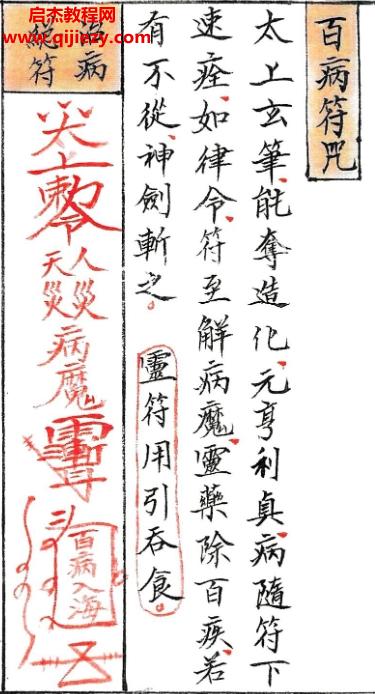 百病符咒
太上玄筆能奪造化元亨利真病隨符下
速痊如律令符至解病魔靈藥除百疾若
有不從神劍斬之
靈符用引吞食
病
符
启杰教程网
敕令
人災
天災
病魔
百病入海